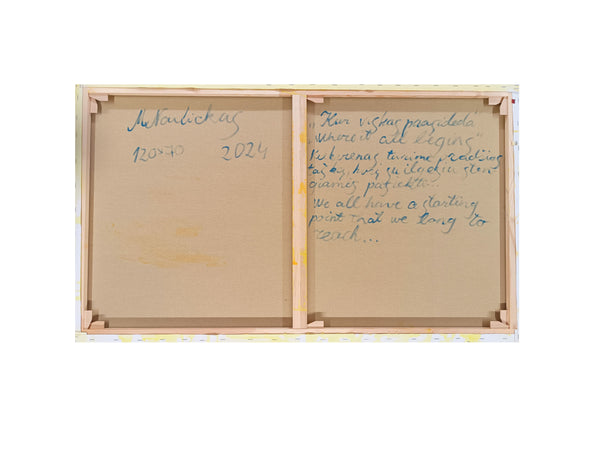 M. Navickas
120x70 2024
„Kur viskas prasideda"
„Where it all begins"
Kiekvienas turime pradžios
tašką, kurį su ilgesiu sten
giamės pasiekti...
We all have a starting
point that we long to
reach...